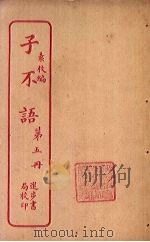 袁枚編
子不語
第五冊
進步書
局校印